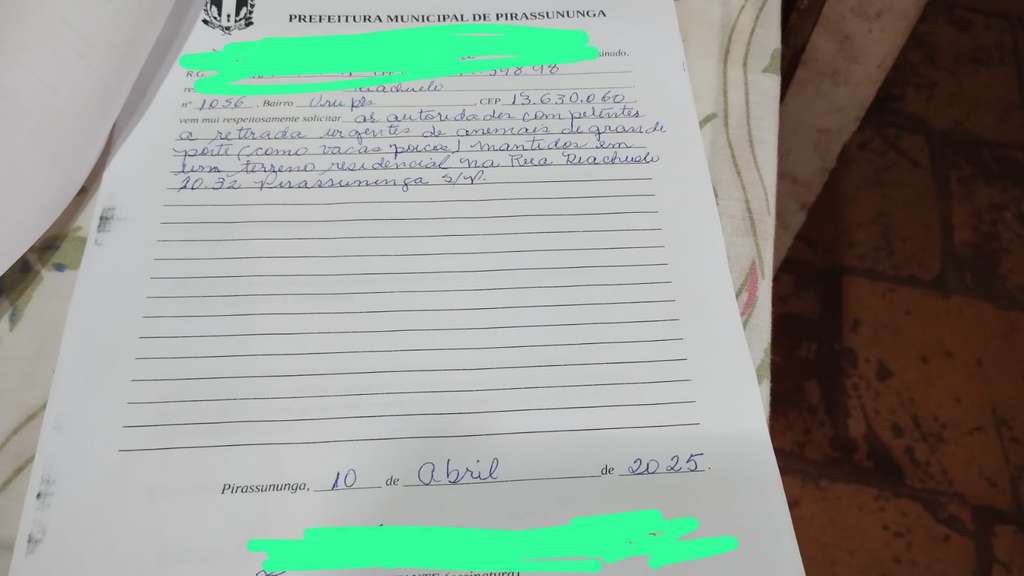 PREFEITURA MUNICIPAL DE PIRASSUNUNGA
R.G.
nº 1056, Bairro CEP 13.630.060
vem mui respeitosamente solicitar as autoridades competentes
a retirada urgentes de anemais de grande
porte (como vacas porcos) mantidos em
um terreno residencial na Rua Riachuelo
10.32 Pirassununga S/P.
Pirassununga, 10 de Abril de 2025.
(assinatura)